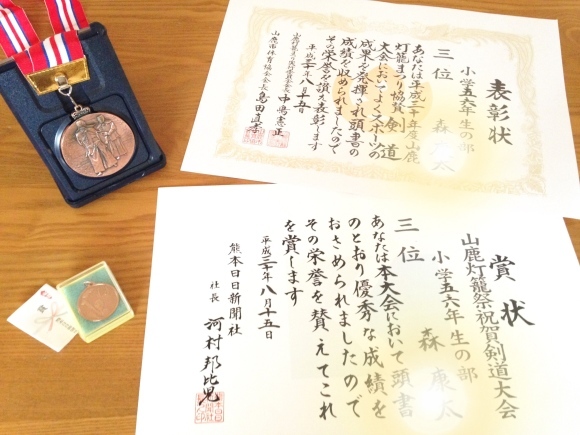 表彰状
小学五六年生の部
三位 森 太
あなたは平成三十年度山鹿
灯籠まつり協賛剣道
大会においてよくスポーツの
成果を発揮され頭書の
成績を収められましたので
その栄誉を讃え表彰します
平成三十年八月十五日
中嶋憲正
山鹿市体育協会会長 島田直孝
賞状
山鹿灯籠祭祝賀剣道大会
小学五六年生の部
三位 森 康太
あなたは本大会において頭書
のとおり優秀な成績を
おさめられましたので
その栄誉を賛えてこれ
を賞します
平成三十年八月十五日
熊本日日新聞社
社長 河村邦比児